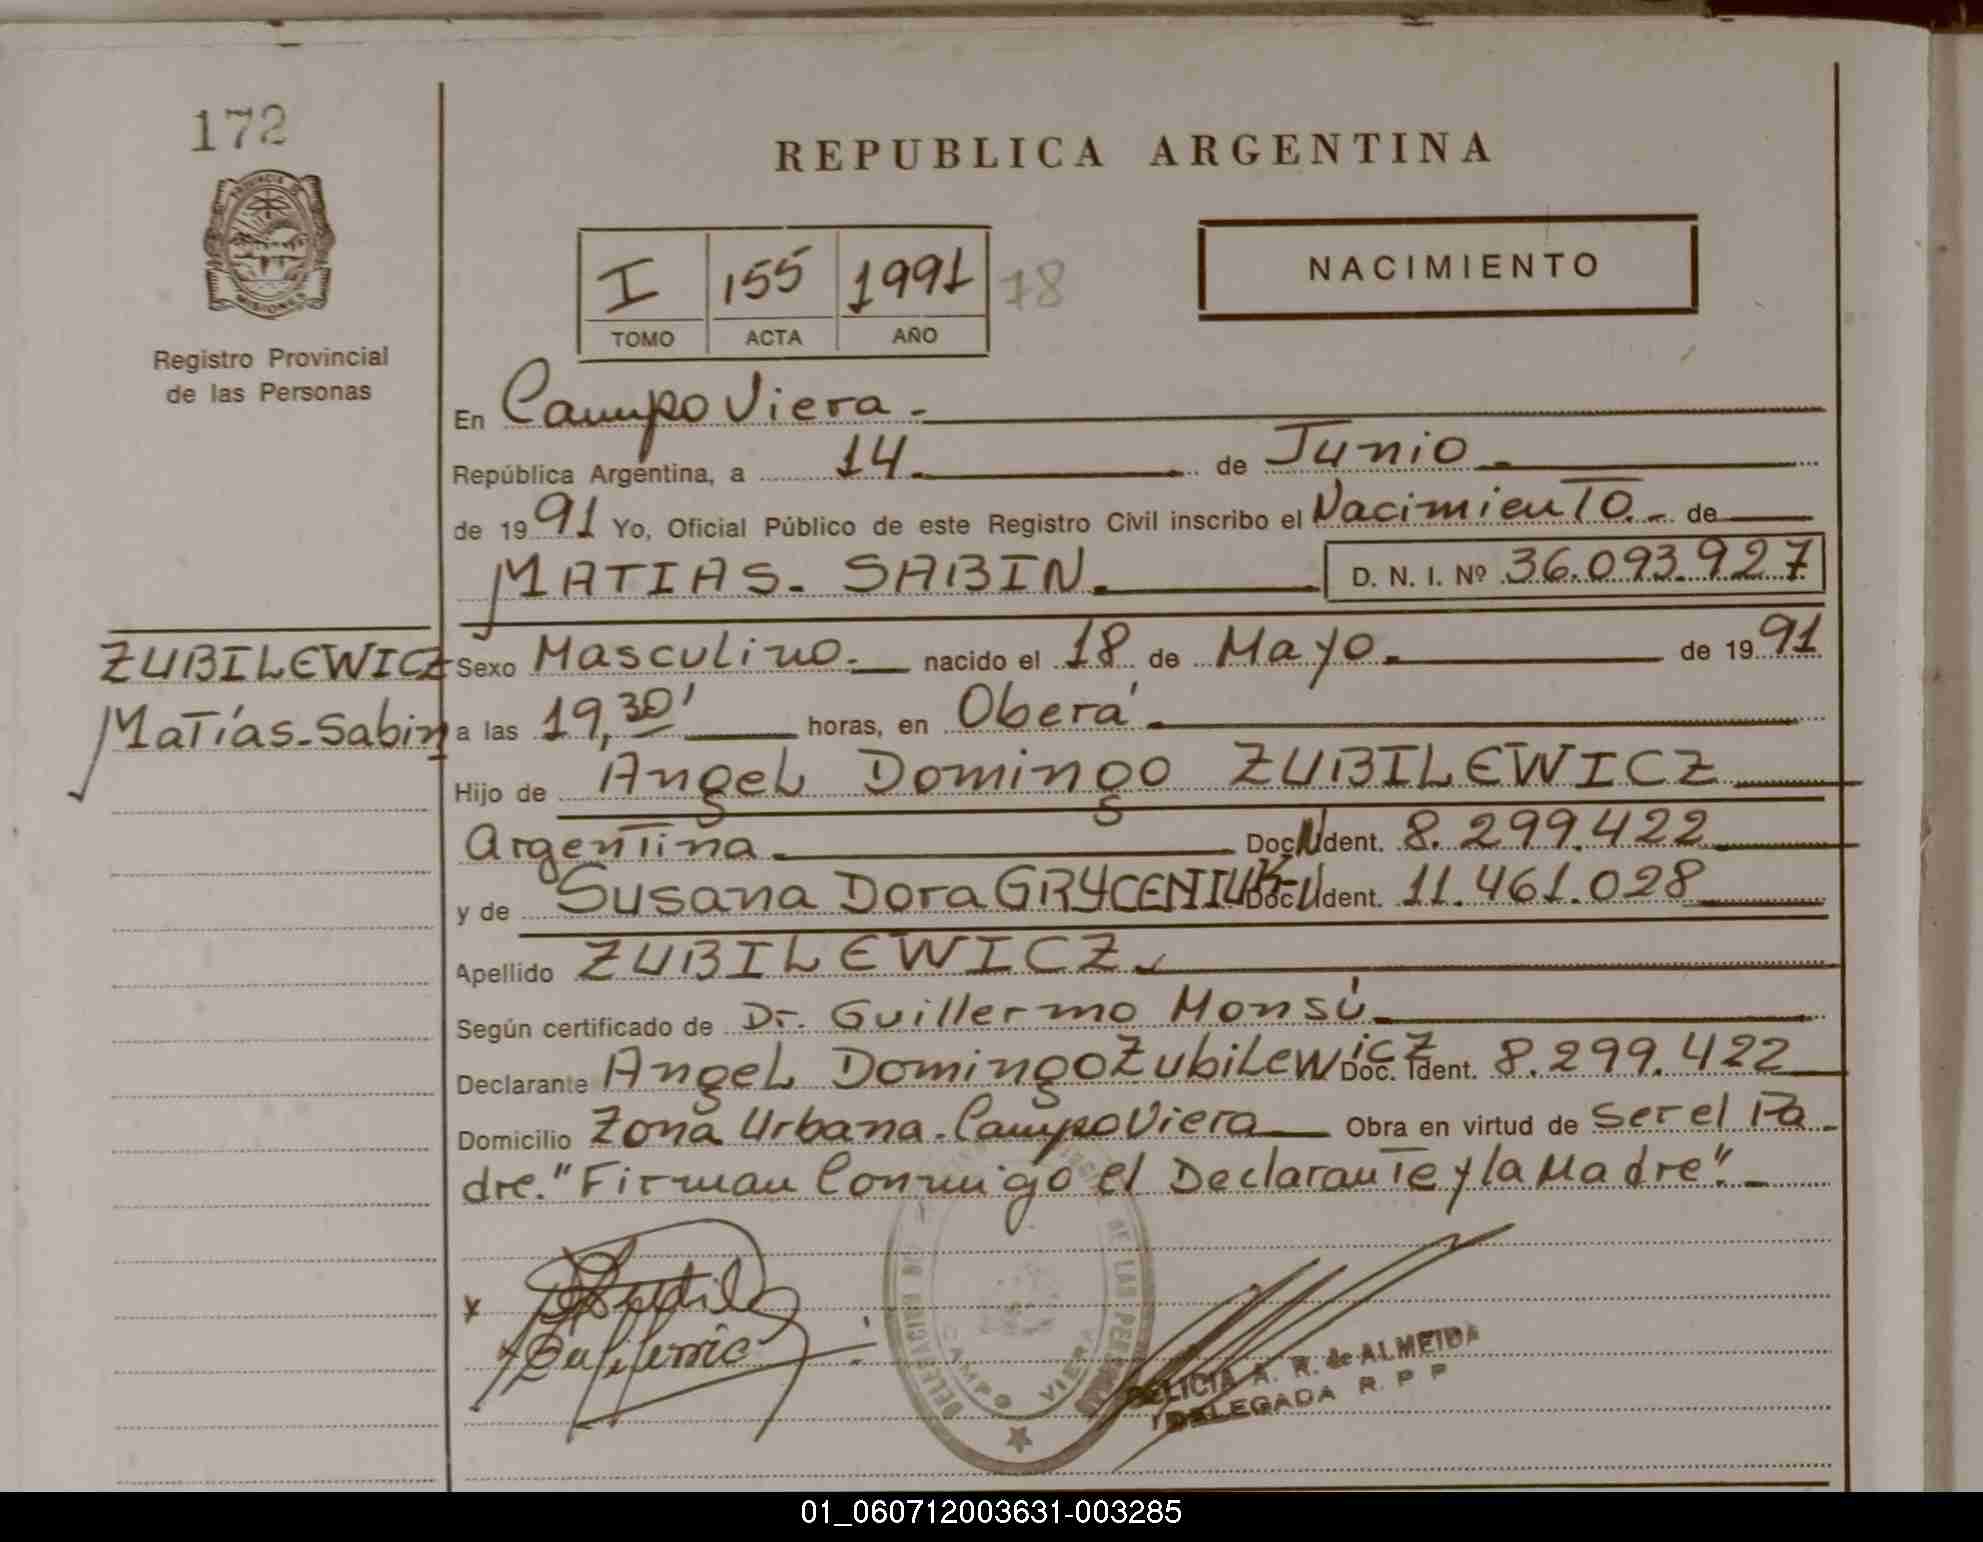 172
PROVINCIA DE
MISIONES
Registro Provincial
de las Personas
REPUBLICA ARGENTINA
I 155 1991 18
TOMO ACTA AÑO
NACIMIENTO
En Campo Viera.
República Argentina, a 14 de Junio
de 1991 Yo, Oficial Público de este Registro Civil inscribo el Nacimiento.- de
MATIAS. SABIN. D. N. I. Nº 36.093.927
ZUBILEWICZ
Matías-Sabin
Sexo Masculino. nacido el 18 de Mayo. de 1991
a las 19,30' horas, en Oberá.
Hijo de Angel Domingo ZUBILEWICZ
Argentina Doc. Ident. 8.299.422
y de Susana Dora GRYCENIUK Doc. Ident. 11.461.028
Apellido ZUBILEWICZ
Según certificado de Dr. Guillermo Monsú
Declarante Angel Domingo Zubilewicz Doc. Ident. 8.299.422
Domicilio Zona Urbana. Campo Viera Obra en virtud de Ser el Pa
dre. "Firman Conmigo el Declarante y la Madre".-
DE LAS PER
CAMPO VIERA
FELICIA A. R. de ALMEIDA
DELEGADA R. P. P
01_060712003631-003285